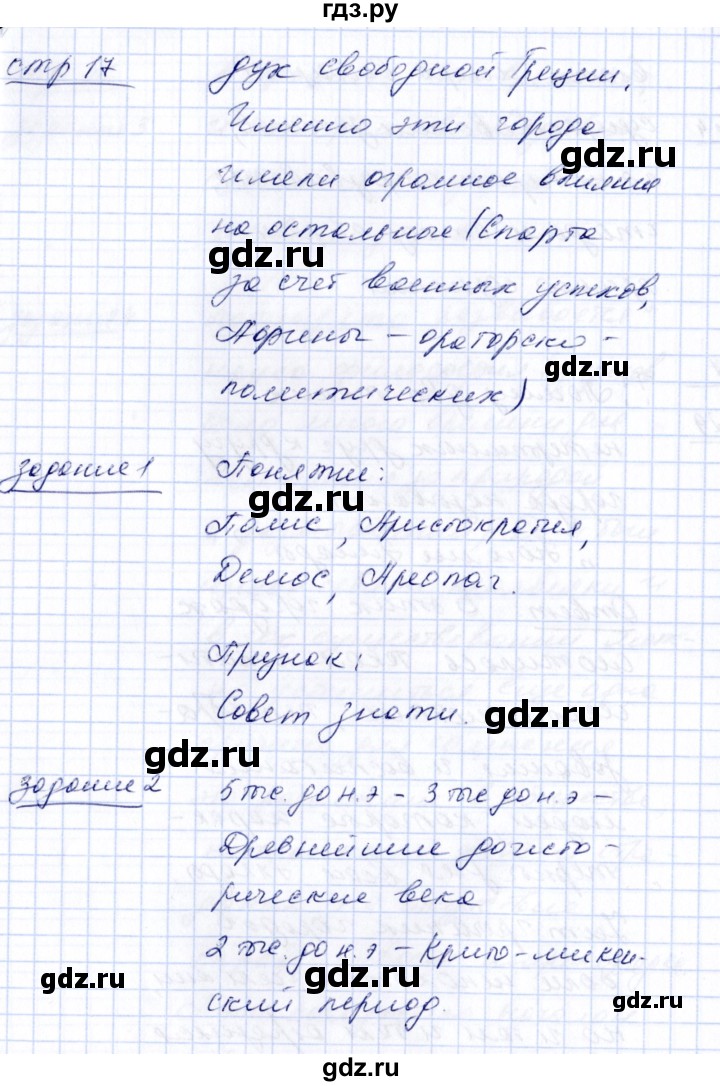 гдз.ру
стр 17
дух свободной Греции.
Именно эти города
имели огромное влияние
на остальные (Спарта
за счет военных успехов,
Афины - ораторско -
политических)
задание 1
Понятие:
Полис, Аристократия,
Демос, Ареопаг.
Признак:
Совет знати.
задание 2
5 тыс. до н.э - 3 тыс до н.э -
Древнейшие доисто-
рические века
2 тыс. до н.э - Крито-микен-
ский период.
gdz.ru
gdz.ru
gdz.ru
gdz.ru
gdz.ru
gdz.ru
gdz.ru
gdz.ru
gdz.ru
гдз.ру